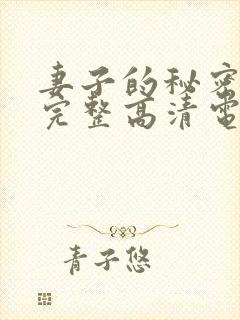 妻子的秘密
完整高清電
青子悠